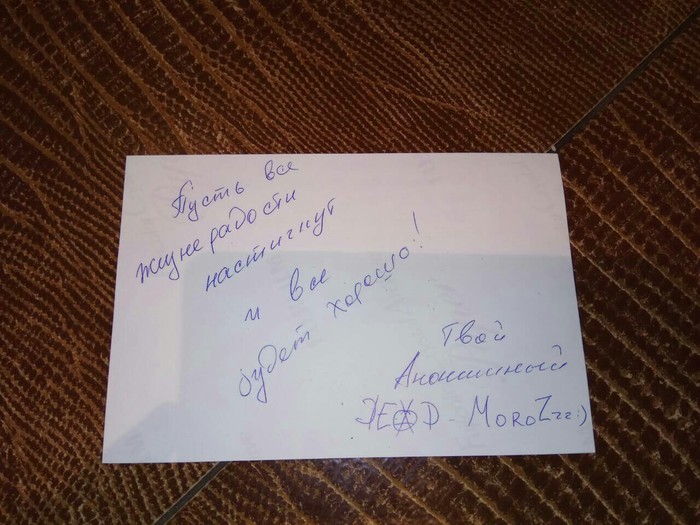 Пусть все
жизнерадости
настигнут
и все
будет хорошо!
Твой
Анонимный
DEAD-MoroZzz:)